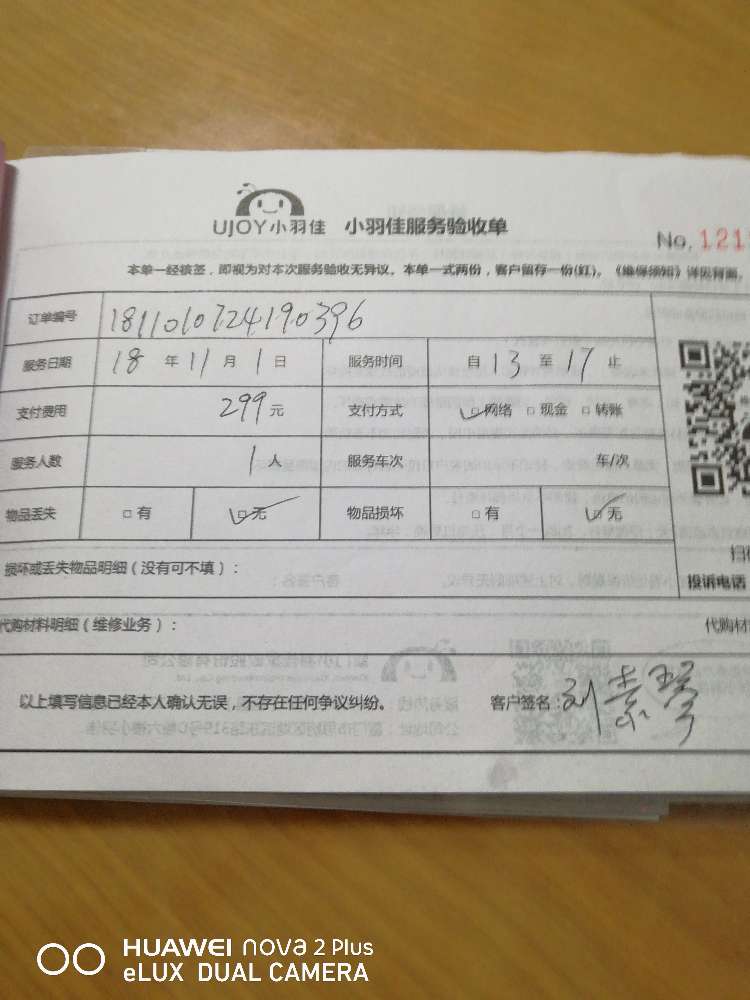 UJOY小羽佳 小羽佳服务验收单
No. 121
本单一经核签，即视为对本次服务验收无异议。本单一式两份，客户留存一份(红)。《维保须知》详见背面。
订单编号 1811010724190396
服务日期 18 年 11 月 1 日 服务时间 自 13 至 17 止
支付费用 299 元 支付方式 □网络 □现金 □转账
服务人数 1 人 服务车次 车/次
物品丢失 □有 □无 物品损坏 □有 □无
损坏或丢失物品明细（没有可不填）：
扫
投诉电话
代购材料明细（维修业务）：
代购材
以上填写信息已经本人确认无误，不存在任何争议纠纷。 客户签名：刘素琴
HUAWEI nova 2 Plus
eLUX DUAL CAMERA